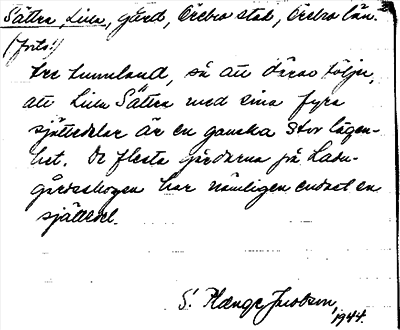 Sättra, Lilla, gård, Örebro stad, Örebro län.
(forts.)
tre tunnland, så att därav följer,
att Lilla Sättra med sina fyra
sjättedelar är en ganska stor lägen-
het. De flesta gårdarna på Ladu-
gårdsskogen har nämligen endast en
sjättedel.
S. Plænge Jacobson,
1944.